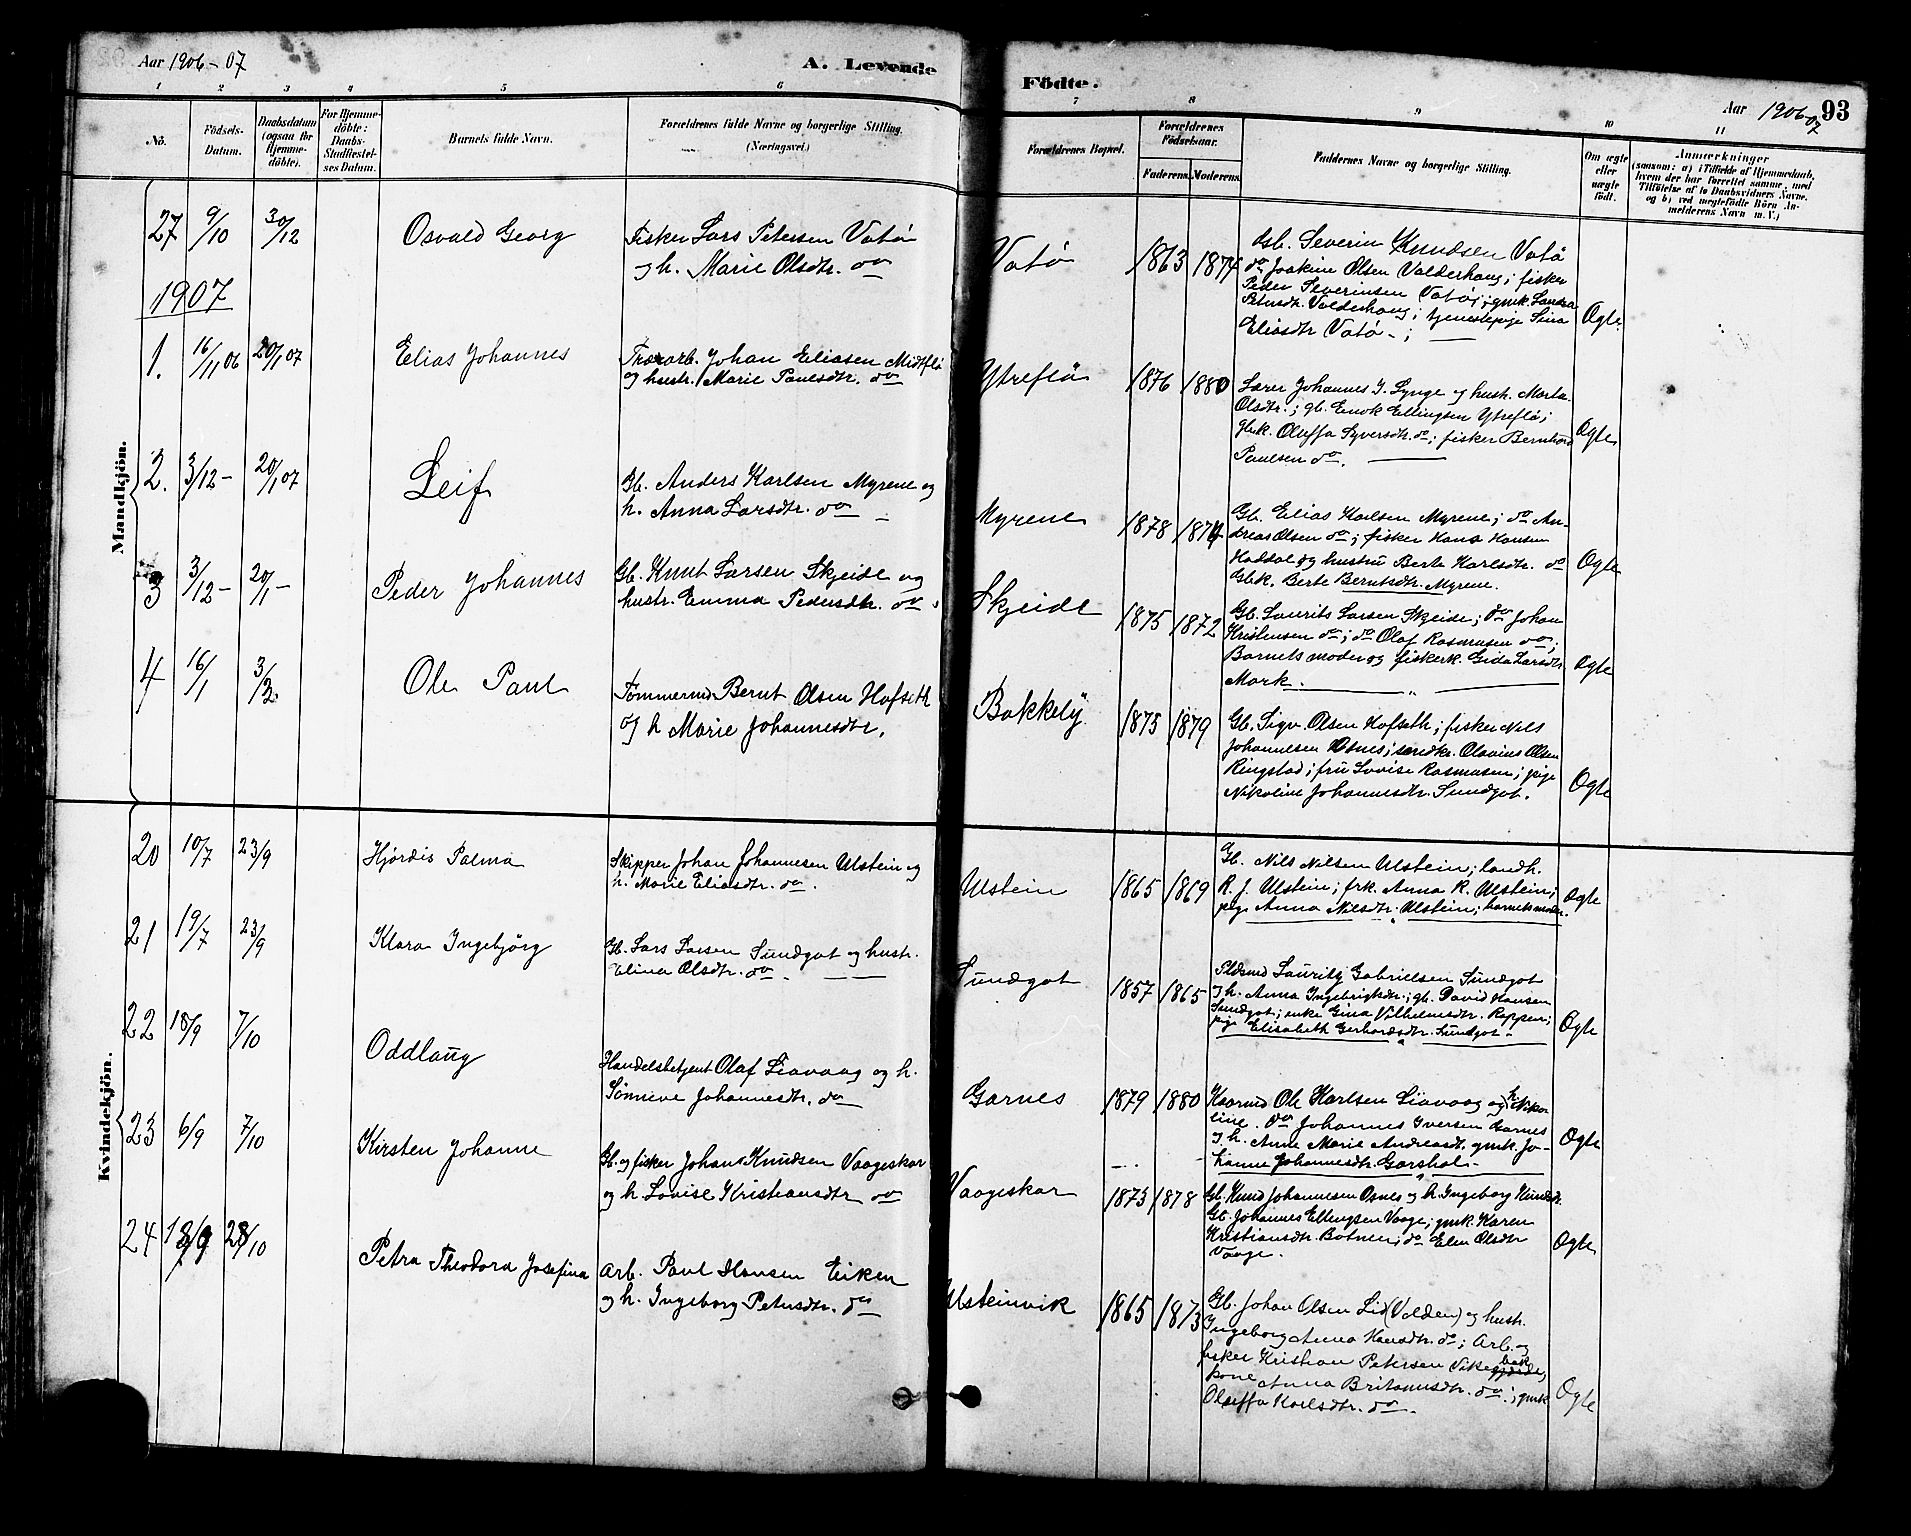 Aar 1906-07
A. Levende
Födte.
Aar 1906-07 93
1 2 3 4 5 6
7 8 9 10 11
No.
Födsels-
Datum.
Daabsdatum
(ogsaa for
Hjemme-
döbte).
For Hjemme-
döbte:
Daabs-
Stadfæstel-
ses Datum.
Barnets fulde Navn.
Forældrenes fulde Navne og borgerlige Stilling.
(Næringsvei.)
Forældrenes Bopæl.
Forældrenes
Födselsaar.
Faderens. Moderens.
Faddernes Navne og borgerlige Stilling.
Om ægte
eller
uægte
födt.
Anmærkninger
(saasom: a) i Tilfælde af Hjemmedaab,
hvem der har forrettet samme, med
Tilföielse af to Daabsvidners Navne,
og b) ved uægtefödte Börn An-
melderens Navn m. V.)
Mandkjön.
27 9/10 30/12 Osvald Georg
Fisker Lars Petersen Vatö
og h. Marie Olsdtr. do
Vatö 1863 1874
Gb. Severin Knudsen Vatö
do Joakim Olsen Valderhaug; fisker
Peder Severinsen Vatö; gmk. Landra
Petersdtr. Valderhaug; tjenestepige Sina
Eliasdtr Vatö -;
Ægte
1907
1. 16/11 06 20/1 07 Elias Johannes
Træarb. Johan Eliasen Midtflö
og hustr. Marie Paulsdtr. do
Ytreflö 1876 1880
Lærer Johannes J. Lynge og hust. Marta
Olsdtr.; gb. Enok Ellingsen Ytreflö;
gbk. Oluffa Syversdtr. do; fisker Bernhard
Paulsen do.
Ægte
2. 3/12 - 20/1 07 Leif
Gb. Anders Karlsen Myrene og
h. Anna Larsdtr. do
Myrene 1878 1874
Gb. Elias Karlsen Myrene; do An-
dreas Olsen do; fisker Hans Hansen
Haddal og hustru Berte Karlsdtr. do
Gbk. Berte Berntsdtr. Myrene.
Ægte
3 3/12 - 20/1 - Peder Johannes
Gb. Knut Larsen Skjeide og
hustr. Emma Pedersdtr. do
Skjeide 1875 1872
Gb. Laurits Larsen Skjeide; do Johan
Kristensen do; do Olaf Rasmusen do;
Barnets moder og fiskerk. Gida Larsdtr
Mork.
Ægte
4 16/1 3/2. Ole Paul
Tømmermd Bernt Olsen Hofseth
og h Marie Johannesdtr.
Bakkely 1875 1879
Gb. Sigv. Olsen Hofseth; fisker Nils
Johannesen Osnes; Olavius Olsen
Ringstad; fru Lovise Rasmusen; pige
Nikoline Johannesdtr. Sundgot.
Ægte
Kvindekjön.
20 10/7 23/9 Hjördis Palma
Skipper Johan Johannesen Ulstein og
h. Marie Eliasdtr. do.
Ulstein 1865 1869
Gb. Nils Nilsen Ulstein; landh.
R. J. Ulstein; frk. Anna R. Ulstein;
pige Anna Nilsdtr. Ulstein; barnets moder.
Ægte
21 19/7 23/9 Klara Ingebjörg
Gb. Lars Larsen Sundgot og hustr.
Elina Olsdtr. do
Sundgot 1857 1865
Lauritz Gabrielsen Sundgot
og h. Anna Ingebrigtsdtr.; gb. David Hansen
Sundgot; enke Gina Vilhelmsdtr. Reppen;
pige Elisabeth Gerhardsdtr. Sundgot -
Ægte
22 18/9 7/10 Oddlaug
Handelsbetjent Olaf Liavaag og h.
Sönneve Johannesdtr. do
Garnes 1879 1880
Kaarmd Ole Karlsen Liavaag og h Niko-
line. do Johannes Iversen Garnes
og h. Anne Marie Andreasdt. gmk. Jo-
hanne Johannesdtr. Garshol -
Ægte
23 6/9 7/10 Kirsten Johanne
Gb. og fisker Johan Knudsen Vaageskar
og h. Lovise Kristiansdtr do
Vaageskar 1873 1878
Gb. Knud Johannesen Osnes og h. Ingeborg Knudsdt.
Gb. Johannes Ellingsen Vaage; gmk. Karen
Kristiansdtr. Botnen; do Elen Olsdtr
Vaage.
Ægte
24 28/10 Petra Theodora Josefina
Arb. Paul Hansen Eiken
og h. Ingeborg Petersdtr. do
Ulsteinvik 1865 1873
Gb. Johan Olsen Lid (Volden) og hustr.
Ingeborg Anna Hansdtr. do; Arb. og
fisker Kristian Petersen Vike
kone Anna Britanusdtr. do; gmk
Oluffa Karlsdtr. do.
Ægte